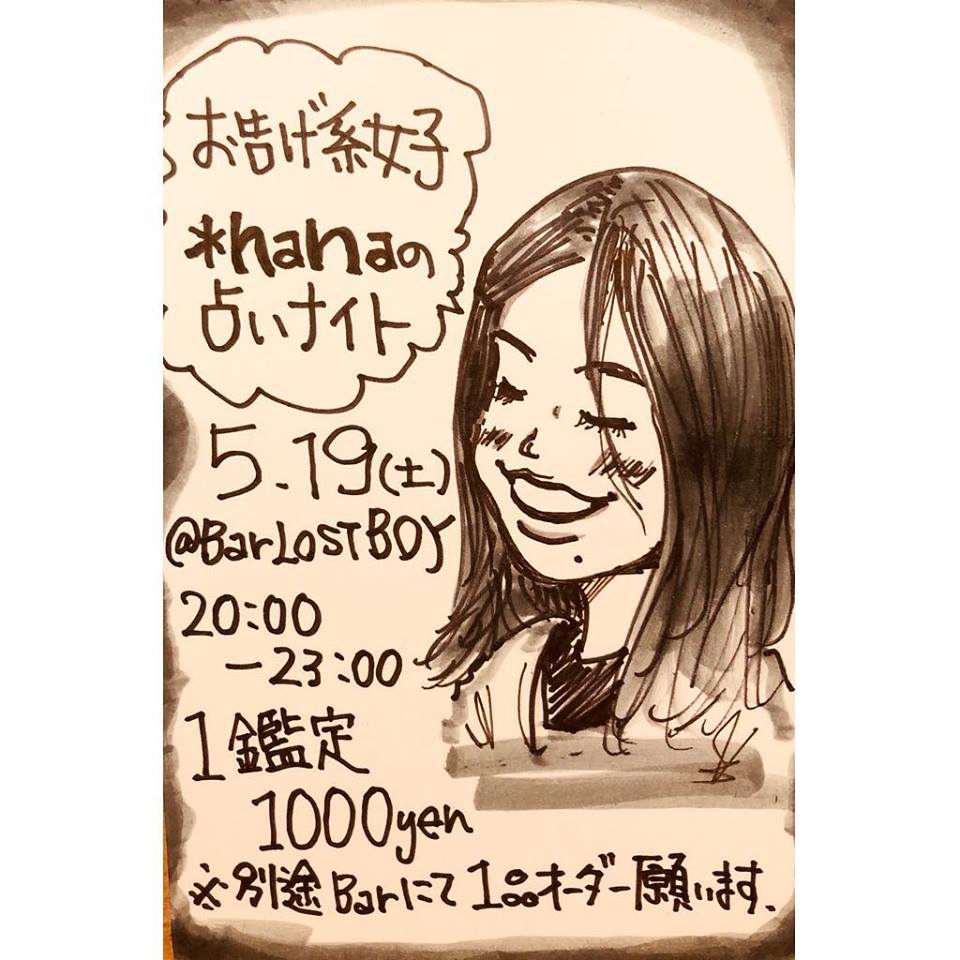 お告げ系女子
*hanaの
占いナイト
5.19(土)
@BarLOSTBOY
20:00
-23:00
1鑑定
1000yen
※別途Barにて1品オーダー願います.